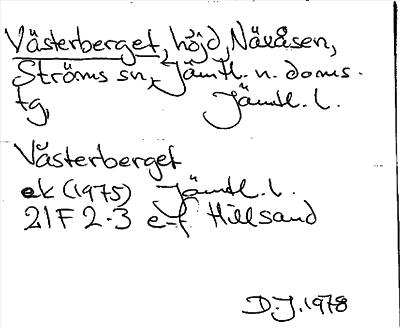 Västerberget, höjd, Näxåsen,
Ströms sn, Jämtl. n. doms.
tg, Jämtl. l.
Västerberget
ek (1975) Jämtl. l.
21F 2-3 e-f Hillsand
D.J. 1978